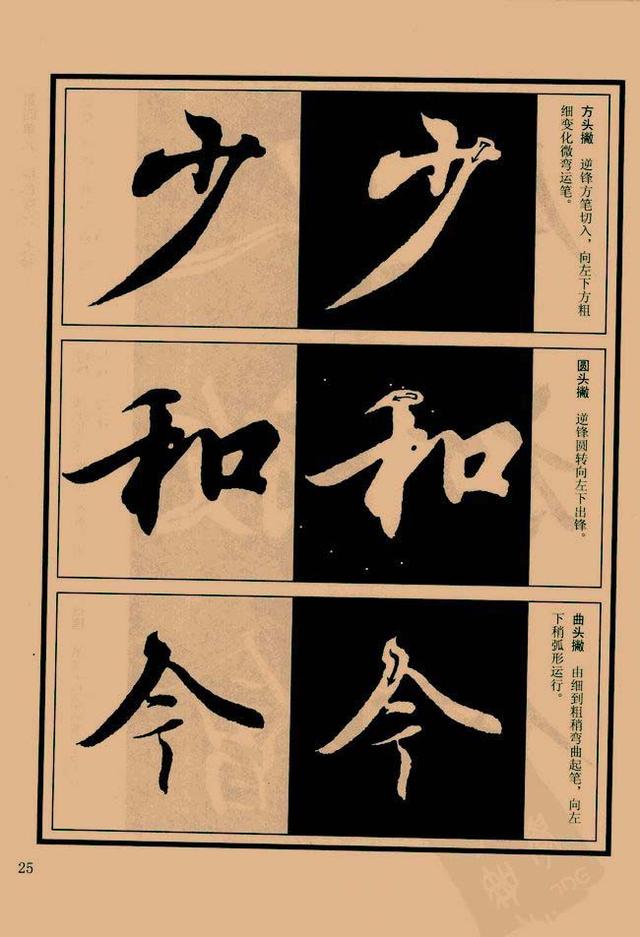 方头撇 逆锋方笔切入，向左下方粗
细变化微弯运笔。
少 少
圆头撇 逆锋圆转向左下出锋。
和 和
曲头撇 由细到粗稍弯曲起笔，向左
下稍弧形运行。
今 今
25